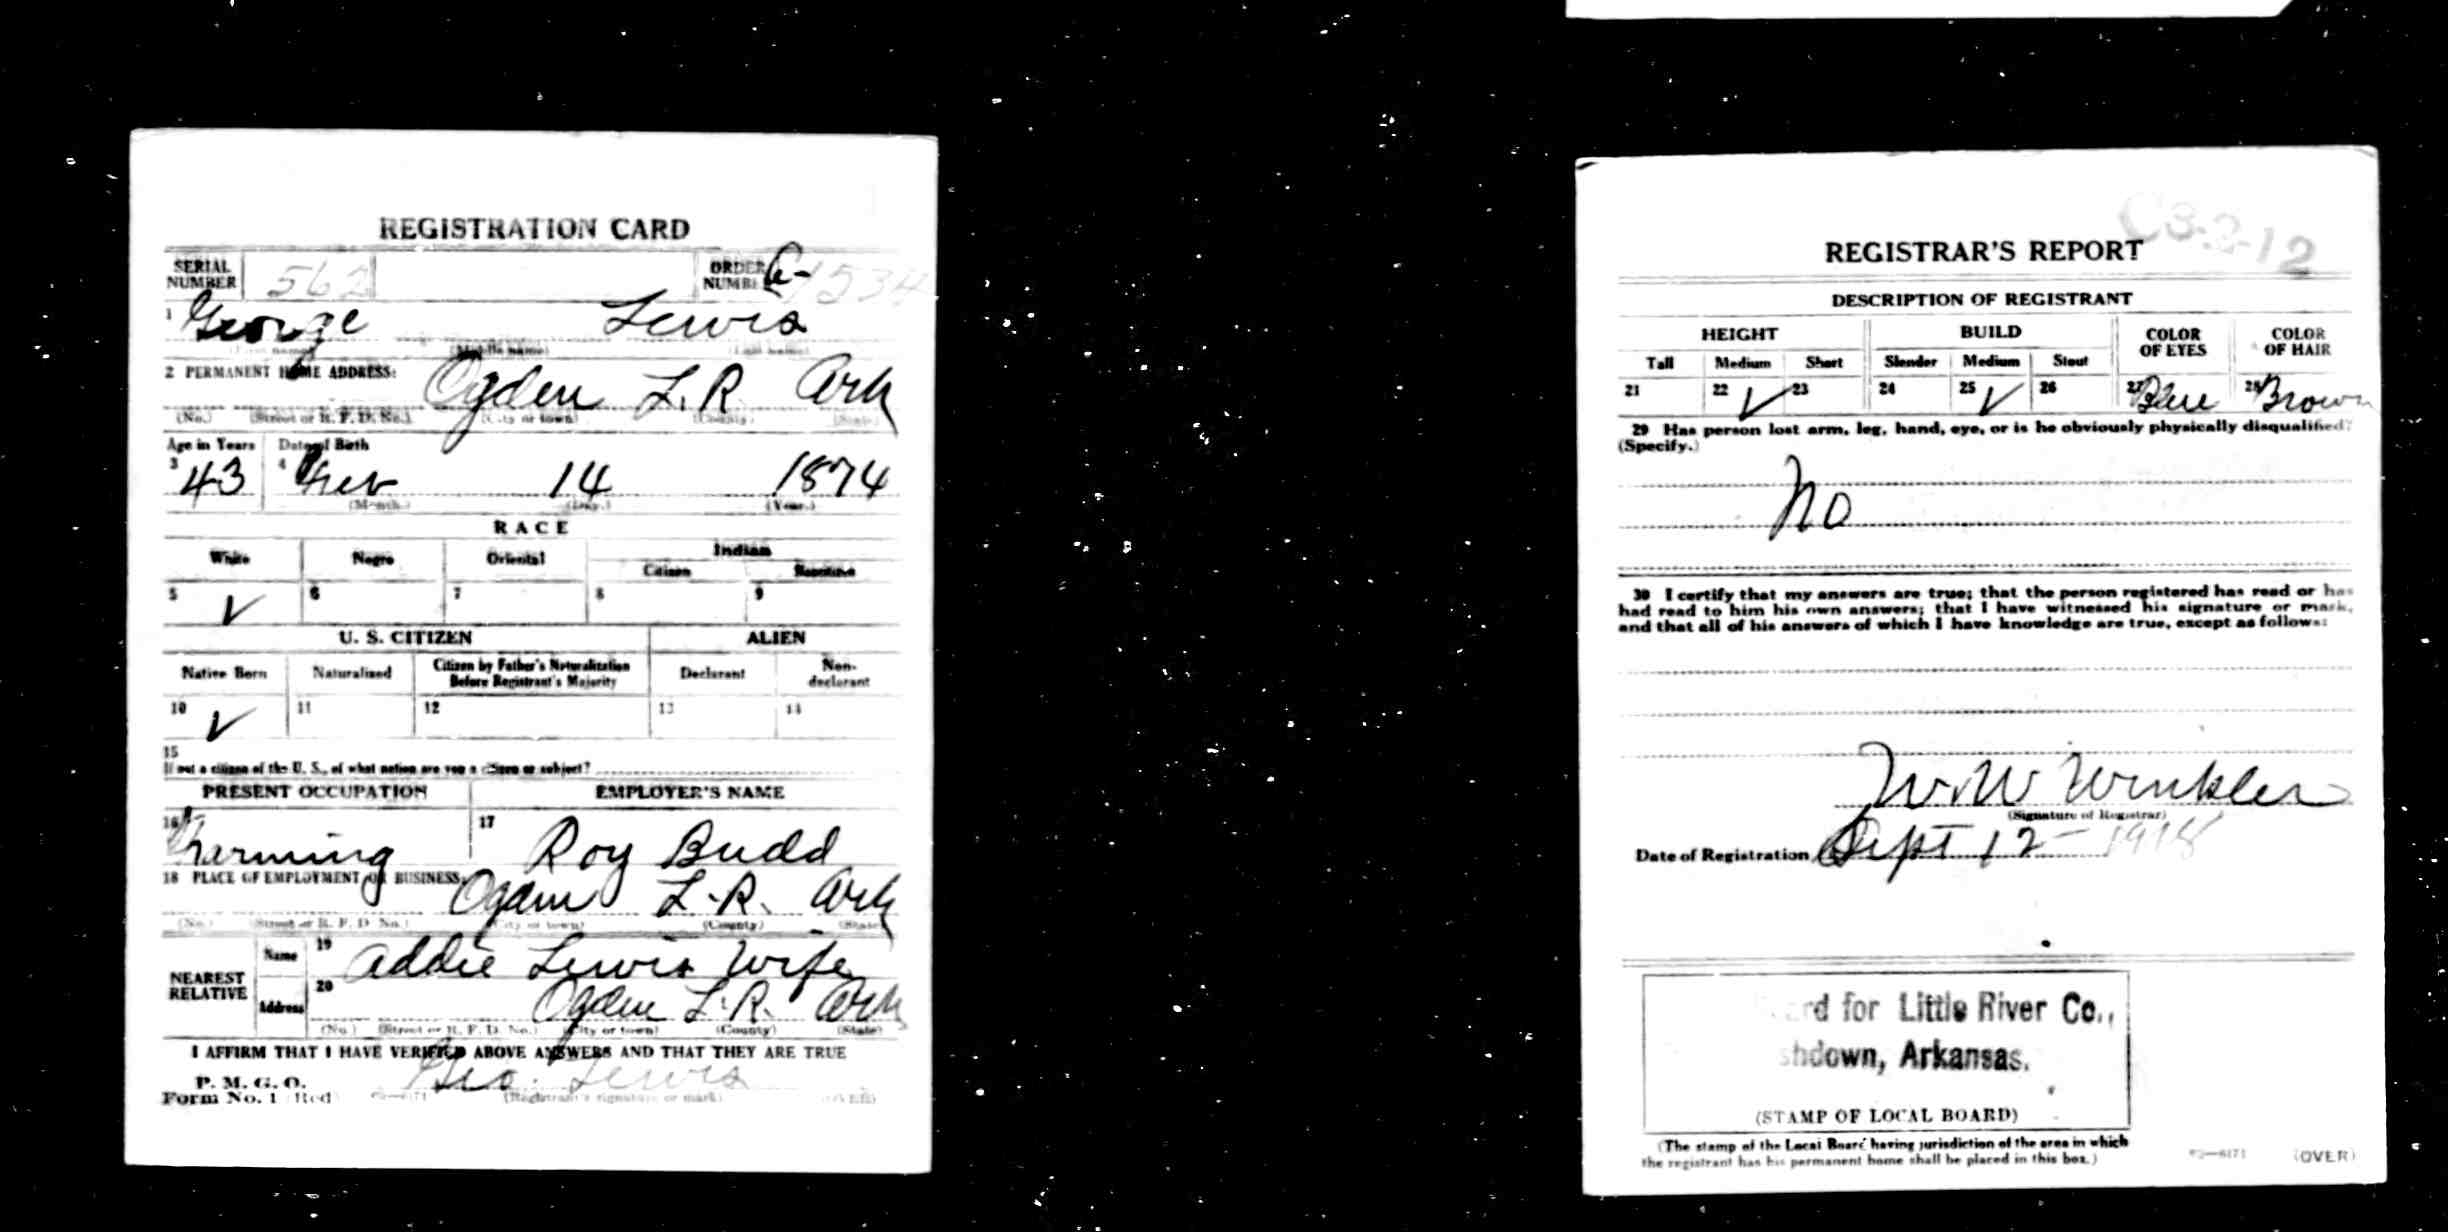 REGISTRATION CARD
SERIAL NUMBER 562 ORDER NUMBER A-1534
1 George Lewis
(First name) (Middle name) (Last name)
2 PERMANENT HOME ADDRESS:
Ogden L.R. Ark
(No.) (Street or R. F. D. No.) (City or town) (County) (State)
Age in Years Date of Birth
3 43 4 Feb 14 1874
(Month.) (Day.) (Year.)
RACE
White Negro Oriental Indian
Citizen Noncitizen
5 ✓ 6 7 8 9
U. S. CITIZEN ALIEN
Native Born Naturalized Citizen by Father's Naturalization Before Registrant's Majority Declarant Non-declarant
10 ✓ 11 12 13 14
15
If not a citizen of the U. S., of what nation are you a citizen or subject?
PRESENT OCCUPATION EMPLOYER'S NAME
16 Farming 17 Roy Budd
18 PLACE OF EMPLOYMENT OR BUSINESS:
Ogden L.R. Ark
(No.) (Street or R. F. D. No.) (City or town) (County) (State)
NEAREST RELATIVE
Name 19 Addie Lewis Wife
Address 20 Ogden L.R. Ark
(No.) (Street or R. F. D. No.) (City or town) (County) (State)
I AFFIRM THAT I HAVE VERIFIED ABOVE ANSWERS AND THAT THEY ARE TRUE
P. M. G. O.
Form No. 1 (Red) Geo. Lewis
(Registrant's signature or mark) (OVER)
C3-2-12
REGISTRAR'S REPORT
DESCRIPTION OF REGISTRANT
HEIGHT BUILD COLOR OF EYES COLOR OF HAIR
Tall Medium Short Slender Medium Stout
21 22 ✓ 23 24 25 ✓ 26 27 Blue 28 Brown
29 Has person lost arm, leg, hand, eye, or is he obviously physically disqualified?
(Specify.)
No
30 I certify that my answers are true; that the person registered has read or has
had read to him his own answers; that I have witnessed his signature or mark,
and that all of his answers of which I have knowledge are true, except as follows:
W.W Winkler
(Signature of Registrar)
Date of Registration Sept 12 - 1918
for Little River Co.,
Arkansas.
(STAMP OF LOCAL BOARD)
(The stamp of the Local Board having jurisdiction of the area in which
the registrant has his permanent home shall be placed in this box.)
(OVER)